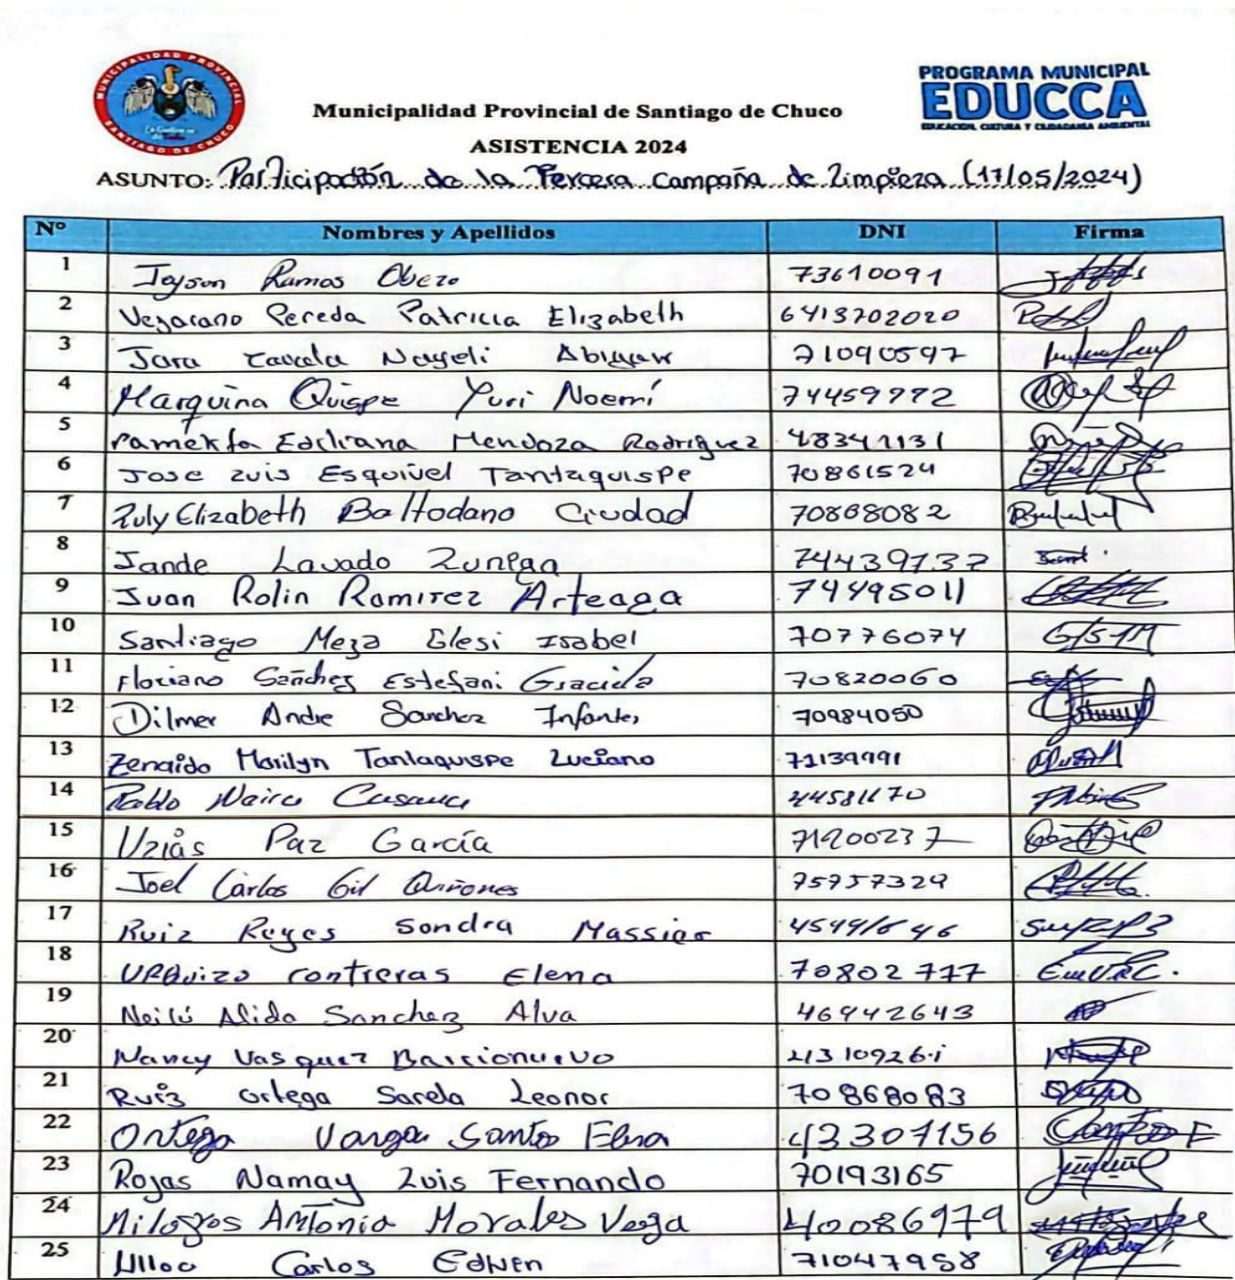 MUNICIPALIDAD PROVINCIAL
SANTIAGO DE CHUCO
PROGRAMA MUNICIPAL
EDUCCA
EDUCACIÓN, CULTURA Y CIUDADANIA AMBIENTAL
Municipalidad Provincial de Santiago de Chuco
ASISTENCIA 2024
ASUNTO: Participación de la Tercera Campaña de Limpieza (17/05/2024)
N° Nombres y Apellidos DNI Firma
1 Jeyson Ramos Obezo 73610091
2 Vejarano Pereda Patricia Elizabeth 6413702020
3 Jara Zavala Nayeli 71090597
4 Marquina Quispe Yuri Noemí 74459772
5 Mendoza Rodriguez 48341131
6 Jose Luis Esquivel Tantaquispe 70861524
7 Zuly Elizabeth Baltodano Ciudad 70868082
8 Jande Lavado Zuñega 74439737
9 Juan Rolin Ramirez Arteaga 74495011
10 Santiago Meza Glesi Isabel 70776074
11 Floriano Sánchez Estefani Graciela 70820060
12 Dilmer Andre Sanchez Infantes 70984050
13 Zenaido Marilyn Tantaquispe Luciano 71139991
14 Pablo Neira 44581170
15 Uziás Paz García 71200237
16 Joel Carlos Gil Quiñones 75757329
17 Ruiz Reyes Sondra Massiel
18 Urquizo Contreras Elena 70802777
19 Neilú Alida Sanchez Alva 46942643
20 Nancy Vasquez Barrionuevo 43109261
21 Ruiz Ortega Sarela Leonor 70868083
22 Ortega Vargas Santos Elena 43307156
23 Rojas Namay Luis Fernando 70193165
24 Milagros Antonia Morales Vega 40086979
25 Ulloa Carlos Edwen 71047958